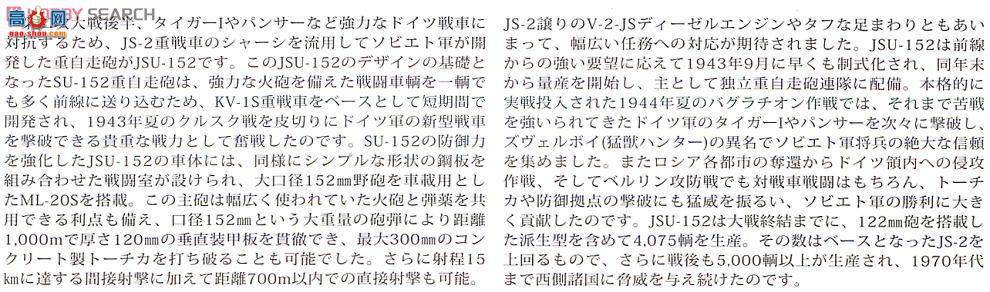 HOBBY SEARCH
大戦後半、タイガーIやパンサーなど強力なドイツ戦車に
対抗するため、JS-2重戦車のシャーシを流用してソビエト軍が開
発した重自走砲がJSU-152です。このJSU-152のデザインの基礎と
なったSU-152重自走砲は、強力な火砲を備えた戦闘車輌を一輌で
も多く前線に送り込むため、KV-1S重戦車をベースとして短期間で
開発され、1943年夏のクルスク戦を皮切りにドイツ軍の新型戦車
を撃破できる貴重な戦力として奮戦したのです。SU-152の防御力
を強化したJSU-152の車体には、同様にシンプルな形状の鋼板を
組み合わせた戦闘室が設けられ、大口径152㎜野砲を車載用とし
たML-20Sを搭載。この主砲は幅広く使われていた火砲と弾薬を共
用できる利点も備え、口径152㎜という大重量の砲弾により距離
1,000mで厚さ120㎜の垂直装甲板を貫徹でき、最大300㎜のコン
クリート製トーチカを打ち破ることも可能でした。さらに射程15
㎞に達する間接射撃に加えて距離700m以内での直接射撃も可能。
JS-2譲りのV-2-JSディーゼルエンジンやタフな足まわりともあい
まって、幅広い任務への対応が期待されました。JSU-152は前線
からの強い要望に応えて1943年9月に早くも制式化され、同年末
から量産を開始し、主として独立重自走砲連隊に配備。本格的に
実戦投入された1944年夏のバグラチオン作戦では、それまで苦戦
を強いられてきたドイツ軍のタイガーIやパンサーを次々に撃破し、
ズヴェルボイ(猛獣ハンター)の異名でソビエト軍将兵の絶大な信頼
を集めました。またロシア各都市の奪還からドイツ領内への侵攻
作戦、そしてベルリン攻防戦でも対戦車戦闘はもちろん、トーチ
カや防御拠点の撃破にも猛威を振るい、ソビエト軍の勝利に大き
く貢献したのです。JSU-152は大戦終結までに、122㎜砲を搭載し
た派生型を含めて4,075輌を生産。その数はベースとなったJS-2を
上回るもので、さらに戦後も5,000輌以上が生産され、1970年代
まで西側諸国に脅威を与え続けたのです。